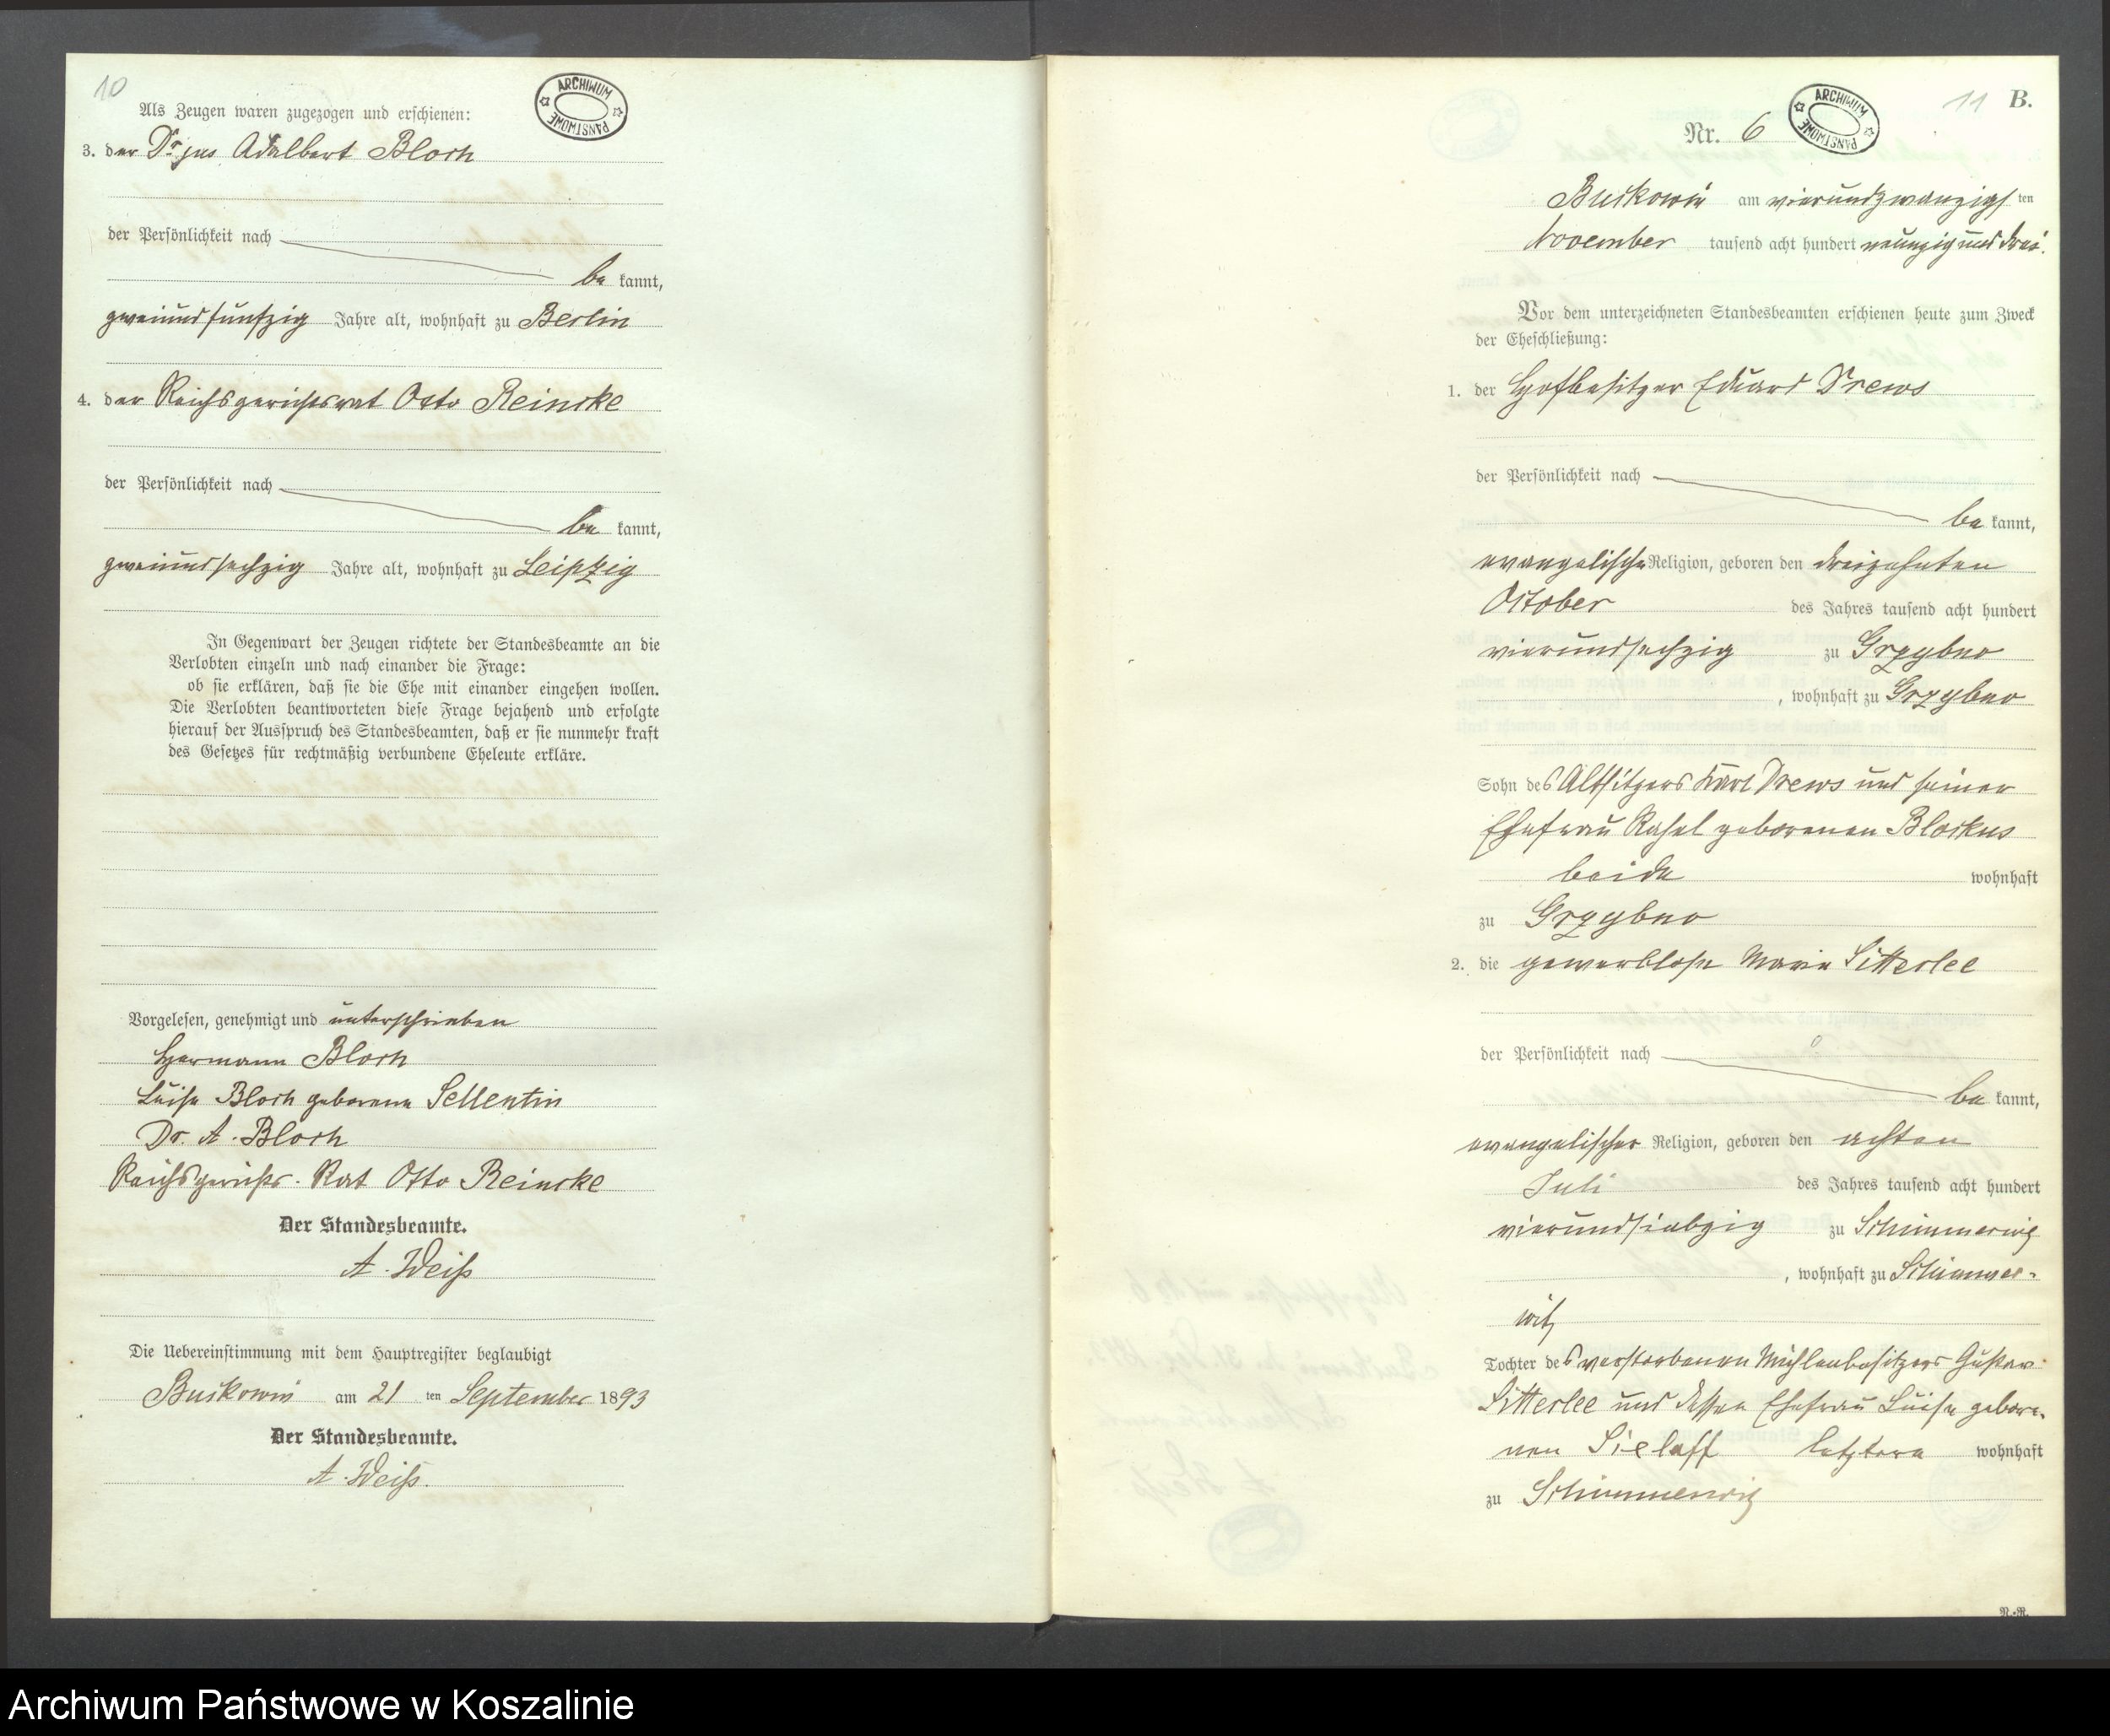 10
ARCHIWUM PAŃSTWOWE
Als Zeugen waren zugezogen und erschienen:
3. der Dr jus Adalbert Bloch
der Persönlichkeit nach
be kannt,
zweiundfünfzig Jahre alt, wohnhaft zu Berlin
4. der Reichsgerichtsrat Otto Reincke
der Persönlichkeit nach
be kannt,
zweiundsechzig Jahre alt, wohnhaft zu Leipzig
In Gegenwart der Zeugen richtete der Standesbeamte an die
Verlobten einzeln und nach einander die Frage:
ob sie erklären, daß sie die Ehe mit einander eingehen wollen.
Die Verlobten beantworteten diese Frage bejahend und erfolgte
hierauf der Ausspruch des Standesbeamten, daß er sie nunmehr kraft
des Gesetzes für rechtmäßig verbundene Eheleute erkläre.
Vorgelesen, genehmigt und unterschrieben
Hermann Bloch
Luise Bloch geborene Sellentin
Dr. A. Bloch
Reichsgerichts-Rat Otto Reincke
Der Standesbeamte.
A. Weiß
Die Uebereinstimmung mit dem Hauptregister beglaubigt
Buckowin am 21 ten September 1893
Der Standesbeamte.
A. Weiß.
11 B.
Nr. 6
ARCHIWUM PAŃSTWOWE
Buckowin am vierundzwanzigs ten
November tausend acht hundert neunzig und drei.
Vor dem unterzeichneten Standesbeamten erschienen heute zum Zweck
der Eheschließung:
1. der Hofbesitzer Eduard Drews
der Persönlichkeit nach
be kannt,
evangelische Religion, geboren den dreizehnten
October des Jahres tausend acht hundert
vierundsechzig zu Grzybno
, wohnhaft zu Grzybno
Sohn des Altsitzers Karl Drews und seiner
Ehefrau Rahel geborenen Blockus
beide wohnhaft
zu Grzybno
2. die gewerblose Marie Litterlee
der Persönlichkeit nach
be kannt,
evangelischer Religion, geboren den achten
Juli des Jahres tausend acht hundert
vierundsiebzig zu Schimmerwitz
, wohnhaft zu Schimmer-
witz
Tochter des verstorbenen Mühlenbesitzers Gustav
Litterlee und dessen Ehefrau Luise gebore-
nen Sielaff letztere wohnhaft
zu Schimmerwitz
N.-R.
Archiwum Państwowe w Koszalinie